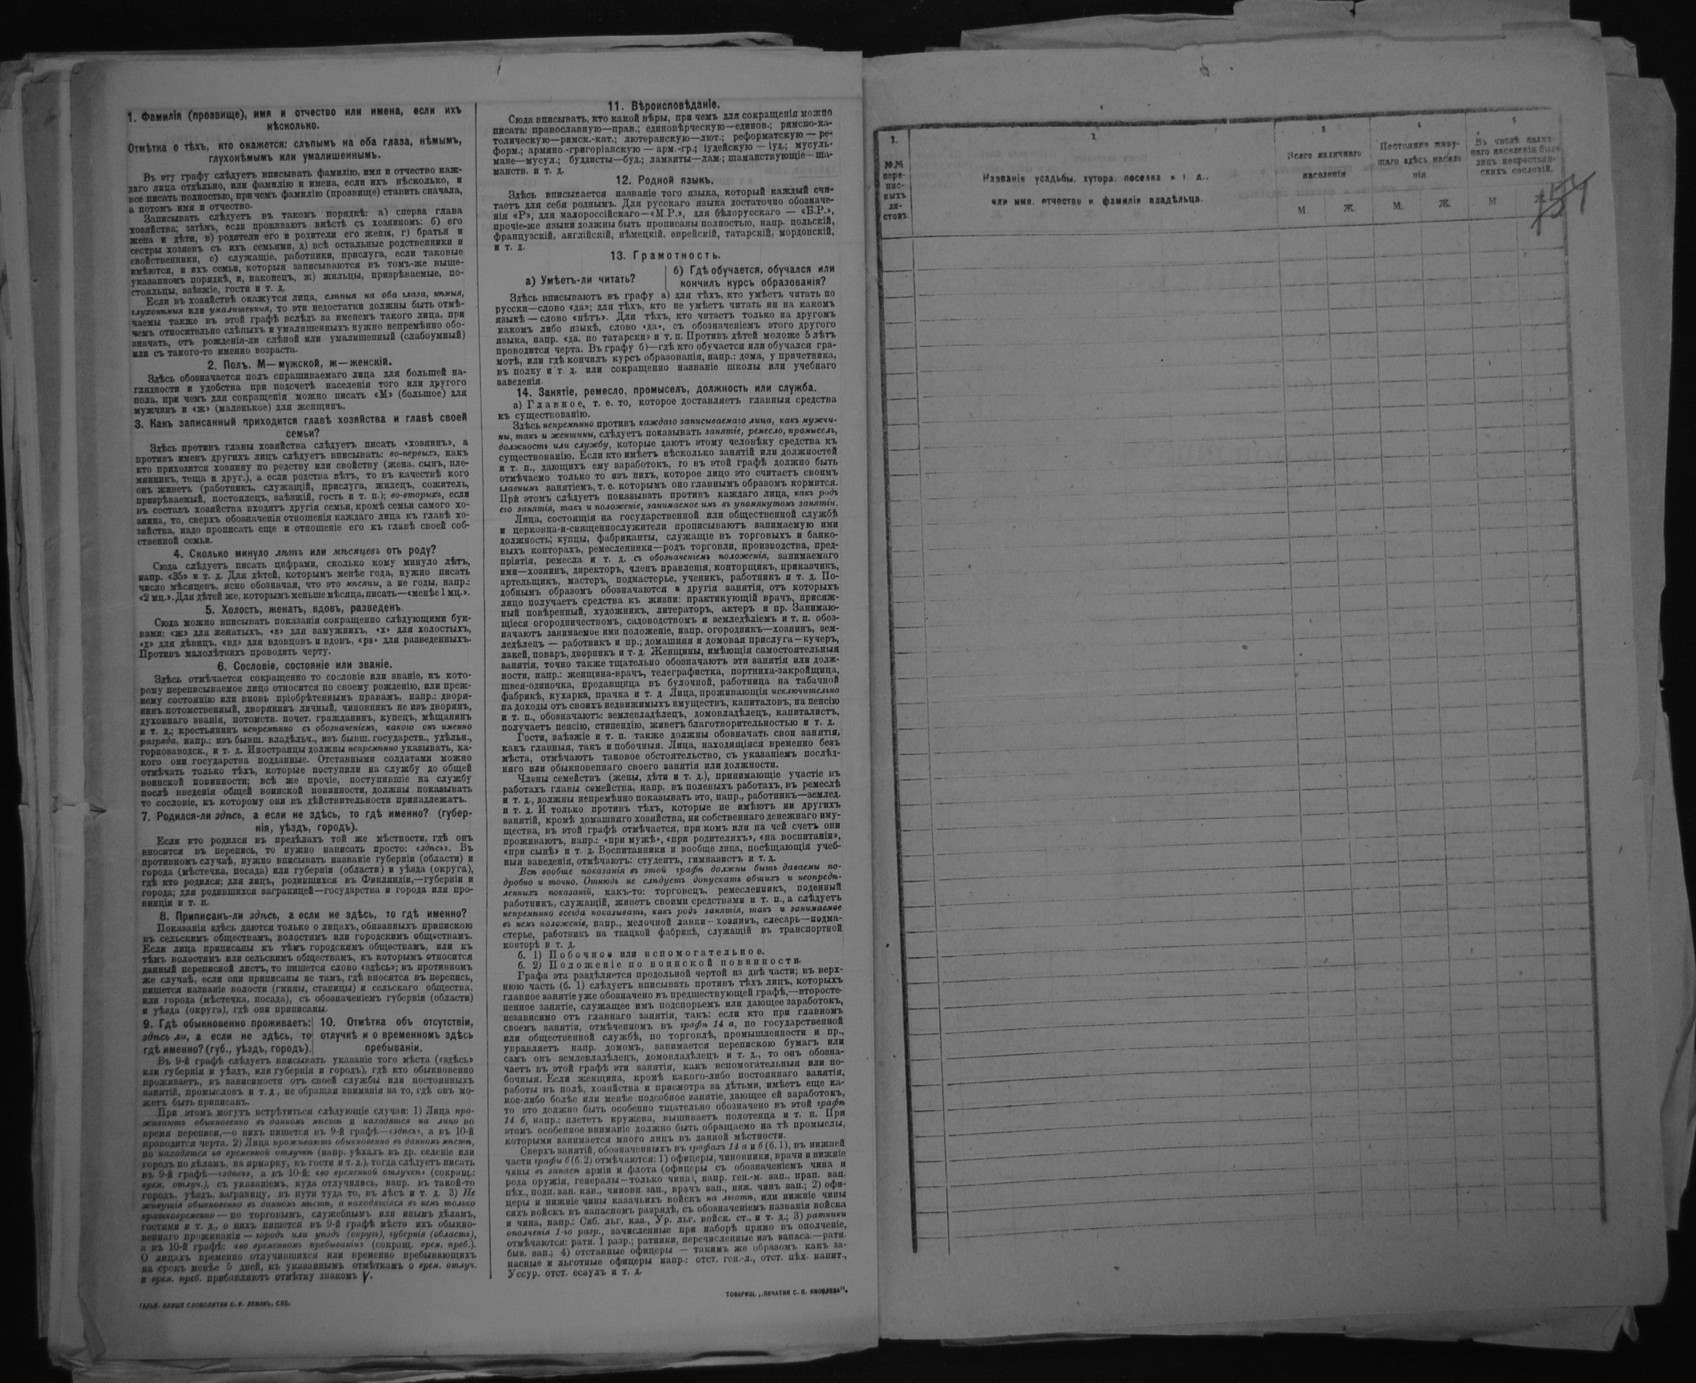 1. Фамилія (прозвище), имя и отчество или имена, если ихъ
нѣсколько.
Отмѣтка о тѣхъ, кто окажется: слѣпымъ на оба глаза, нѣмымъ,
глухонѣмымъ или умалишеннымъ.
Въ эту графу слѣдуетъ вписывать фамилію, имя и отчество каж-
даго лица отдѣльно, или фамилію и имена, если ихъ нѣсколько, и
все писать полностью, при чемъ фамилію (прозвище) ставить сначала,
а потомъ имя и отчество.
Записывать слѣдуетъ въ такомъ порядкѣ: а) сперва глава
хозяйства; затѣмъ, если проживаютъ вмѣстѣ съ хозяиномъ: б) его
жена и дѣти, в) родители его и родители его жены, г) братья и
сестры хозяевъ съ ихъ семьями, д) всѣ остальные родственники и
свойственники, е) служащіе, работники, прислуга, если таковые
имѣются, и ихъ семьи, которыя записываются въ томъ-же выше-
указанномъ порядкѣ, и, наконецъ, ж) жильцы, призрѣваемые, по-
стояльцы, заѣзжіе, гости и т. д.
Если въ хозяйствѣ окажутся лица, слѣпыя на оба глаза, нѣмыя,
глухонѣмыя или умалишенныя, то эти недостатки должны быть отмѣ-
чаемы также въ этой графѣ вслѣдъ за именемъ такого лица, при
чемъ относительно слѣпыхъ и умалишенныхъ нужно непремѣнно обо-
значать, отъ рожденія-ли слѣпой или умалишенный (слабоумный)
или съ такого-то именно возраста.
2. Полъ. М—мужской, ж—женскій.
Здѣсь обозначается полъ спрашиваемаго лица для большей на-
глядности и удобства при подсчетѣ населенія того или другого
пола, при чемъ для сокращенія можно писать «М» (большое) для
мужчинъ и «ж» (маленькое) для женщинъ.
3. Какъ записанный приходится главѣ хозяйства и главѣ своей
семьи?
Здѣсь противъ главы хозяйства слѣдуетъ писать «хозяинъ», а
противъ именъ другихъ лицъ слѣдуетъ вписывать: во-первыхъ, какъ
кто приходится хозяину по родству или свойству (жена, сынъ, пле-
мянникъ, теща и друг.), а если родства нѣтъ, то въ качествѣ кого
онъ живетъ (работникъ, служащій, прислуга, жилецъ, сожитель,
призрѣваемый, постоялецъ, заѣзжій, гость и т. п.); во-вторыхъ, если
въ составъ хозяйства входятъ другія семьи, кромѣ семьи самого хо-
зяина, то, сверхъ обозначенія отношенія каждаго лица къ главѣ хо-
зяйства, надо прописать еще и отношеніе его къ главѣ своей соб-
ственной семьи.
4. Сколько минуло лѣтъ или мѣсяцевъ отъ роду?
Сюда слѣдуетъ писать цифрами, сколько кому минуло лѣтъ,
напр. «35» и т. д. Для дѣтей, которымъ менѣе года, нужно писать
число мѣсяцевъ, ясно обозначая, что это мѣсяцы, а не годы, напр.:
«2 мц.». Для дѣтей же, которымъ меньше мѣсяца, писать—«менѣе 1 мц.».
5. Холостъ, женатъ, вдовъ, разведенъ.
Сюда можно вписывать показанія сокращенно слѣдующими бук-
вами: «ж» для женатыхъ, «з» для замужнихъ, «х» для холостыхъ,
«д» для дѣвицъ, «вд» для вдовцовъ и вдовъ, «рз» для разведенныхъ.
Противъ малолѣтнихъ проводить черту.
6. Сословіе, состояніе или званіе.
Здѣсь отмѣчается сокращенно то сословіе или званіе, къ кото-
рому переписываемое лицо относится по своему рожденію, или преж-
нему состоянію или вновь пріобрѣтеннымъ правамъ, напр.: дворя-
нинъ потомственный, дворянинъ личный, чиновникъ не изъ дворянъ,
духовнаго званія, потомств. почет. гражданинъ, купецъ, мѣщанинъ
и т. д.; крестьянинъ непремѣнно съ обозначеніемъ, какого онъ именно
разряда, напр.: изъ бывш. владѣльч., изъ бывш. государств., удѣльн.,
горнозаводск., и т. д. Иностранцы должны непремѣнно указывать, ка-
кого они государства подданные. Отставными солдатами можно
отмѣчать только тѣхъ, которые поступили на службу до общей
воинской повинности; всѣ же прочіе, поступившіе на службу
послѣ введенія общей воинской повинности, должны показывать
то сословіе, къ которому они въ дѣйствительности принадлежатъ.
7. Родился-ли здѣсь, а если не здѣсь, то гдѣ именно? (губер-
нія, уѣздъ, городъ).
Если кто родился въ предѣлахъ той же мѣстности, гдѣ онъ
вносится въ перепись, то нужно написать просто: «здѣсь». Въ
противномъ случаѣ, нужно вписывать названіе губерніи (области) и
города (мѣстечка, посада) или губерніи (области) и уѣзда (округа),
гдѣ кто родился; для лицъ, родившихся въ Финляндіи,—губерніи и
города; для родившихся заграницей—государства и города или про-
винціи и т. п.
8. Приписанъ-ли здѣсь, а если не здѣсь, то гдѣ именно?
Показанія здѣсь даются только о лицахъ, обязанныхъ припискою
къ сельскимъ обществамъ, волостямъ или городскимъ обществамъ.
Если лица приписаны къ тѣмъ городскимъ обществамъ, или къ
тѣмъ волостямъ или сельскимъ обществамъ, къ которымъ относится
данный переписной листъ, то пишется слово «здѣсь»; въ противномъ
же случаѣ, если они приписаны не тамъ, гдѣ вносятся въ перепись,
пишется названіе волости (гмины, станицы) и сельскаго общества,
или города (мѣстечка, посада), съ обозначеніемъ губерніи (области)
и уѣзда (округа), гдѣ они приписаны.
9. Гдѣ обыкновенно проживаетъ:
здѣсь ли, а если не здѣсь, то
гдѣ именно? (губ., уѣздъ, городъ).
10. Отмѣтка объ отсутствіи,
отлучкѣ и о временномъ здѣсь
пребываніи.
Въ 9-й графѣ слѣдуетъ вписывать указаніе того мѣста («здѣсь»
или губернія и уѣздъ, или губернія и городъ), гдѣ кто обыкновенно
проживаетъ, въ зависимости отъ своей службы или постоянныхъ
занятій, промысловъ и т. д., не обращая вниманія на то, гдѣ онъ мо-
жетъ быть приписанъ.
При этомъ могутъ встрѣтиться слѣдующіе случаи: 1) Лица про-
живаютъ обыкновенно въ данномъ мѣстѣ и находятся на лицо во
время переписи,—о нихъ пишется въ 9-й графѣ—«здѣсь», а въ 10-й
проводится черта. 2) Лица проживаютъ обыкновенно въ данномъ мѣстѣ,
но находятся во временной отлучкѣ (напр. уѣхалъ въ др. селеніе или
городъ по дѣламъ, на ярмарку, въ гости и т. д.), тогда слѣдуетъ писать
въ 9-й графѣ—«здѣсь», а въ 10-й: «во временной отлучкѣ» (сокращ.:
врем. отлуч.), съ указаніемъ, куда отлучились, напр. въ такой-то
городъ, уѣздъ, заграницу, въ пути туда то, въ лѣсъ и т. д. 3) Не
живущія обыкновенно въ данномъ мѣстѣ, а находятся въ немъ только
кратковременно — по торговымъ, служебнымъ или инымъ дѣламъ,
гостями и т. д., о нихъ пишется въ 9-й графѣ мѣсто ихъ обыкно-
веннаго проживанія — городъ или уѣздъ (округъ), губернія (область),
а въ 10-й графѣ: «во временномъ пребываніи» (сокращ. врем. преб.).
О лицахъ временно отлучившихся или временно пребывающихъ
на срокъ менѣе 5 дней, къ указаннымъ отмѣткамъ о врем. отлуч.
и врем. преб. прибавляютъ отмѣтку знакомъ V.
11. Вѣроисповѣданіе.
Сюда вписывать, кто какой вѣры, при чемъ для сокращенія можно
писать: православную—прав.; единовѣрческую—единов.; римско-ка-
толическую—римск.-кат.; лютеранскую—лют.; реформатскую — ре-
форм.; армяно-григоріанскую — арм.-гр.; іудейскую — іуд.; мусуль-
мане—мусул.; буддисты—буд.; ламаиты—лам.; шаманствующіе—ша-
манств. и т. д.
12. Родной языкъ.
Здѣсь вписывается названіе того языка, который каждый счи-
таетъ для себя роднымъ. Для русскаго языка достаточно обозначе-
нія «Р», для малороссійскаго—«М.Р.», для бѣлорусскаго — «Б.Р.»,
прочіе-же языки должны быть прописаны полностью, напр. польскій,
французскій, англійскій, нѣмецкій, еврейскій, татарскій, мордовскій,
и т. д.
13. Грамотность.
а) Умѣетъ-ли читать?
б) Гдѣ обучается, обучался или
кончилъ курсъ образованія?
Здѣсь вписываютъ въ графу а) для тѣхъ, кто умѣетъ читать по
русски—слово «да»; для тѣхъ, кто не умѣетъ читать ни на какомъ
языкѣ — слово «нѣтъ». Для тѣхъ, кто читаетъ только на другомъ
какомъ либо языкѣ, слово «да», съ обозначеніемъ этого другого
языка, напр. «да, по татарски» и т. п. Противъ дѣтей моложе 5 лѣтъ
проводится черта. Въ графу б)—гдѣ кто обучается или обучался гра-
мотѣ, или гдѣ кончилъ курсъ образованія, напр.: дома, у причетника,
въ полку и т. д. или сокращенно названіе школы или учебнаго
заведенія.
14. Занятіе, ремесло, промыселъ, должность или служба.
а) Главное, т. е. то, которое доставляетъ главныя средства
къ существованію.
Здѣсь непремѣнно противъ каждаго записываемаго лица, какъ мужчи-
ны, такъ и женщины, слѣдуетъ показывать занятіе, ремесло, промыселъ,
должность или службу, которые даютъ этому человѣку средства къ
существованію. Если кто имѣетъ нѣсколько занятій или должностей
и т. п., дающихъ ему заработокъ, то въ этой графѣ должно быть
отмѣчаемо только то изъ нихъ, которое лицо это считаетъ своимъ
главнымъ занятіемъ, т. е. которымъ оно главнымъ образомъ кормится.
При этомъ слѣдуетъ показывать противъ каждаго лица, какъ родъ
его занятія, такъ и положеніе, занимаемое имъ въ упомянутомъ занятіи.
Лица, состоящія на государственной или общественной службѣ
и церковно-и-священнослужители прописываютъ занимаемую ими
должность; купцы, фабриканты, служащіе въ торговыхъ и банко-
выхъ конторахъ, ремесленники—родъ торговли, производства, пред-
пріятія, ремесла и т. д. съ обозначеніемъ положенія, занимаемаго
ими—хозяинъ, директоръ, членъ правленія, конторщикъ, приказчикъ,
артельщикъ, мастеръ, подмастерье, ученикъ, работникъ и т. д. По-
добнымъ образомъ обозначаются и другія занятія, отъ которыхъ
лицо получаетъ средства къ жизни: практикующій врачъ, присяж-
ный повѣренный, художникъ, литераторъ, актеръ и пр. Занимаю-
щіеся огородничествомъ, садоводствомъ и земледѣліемъ и т. п. обоз-
начаютъ занимаемое ими положеніе, напр. огородникъ—хозяинъ, зем-
ледѣлецъ — работникъ и пр.; домашняя и домовая прислуга—кучеръ,
лакей, поваръ, дворникъ и т. д. Женщины, имѣющія самостоятельныя
занятія, точно также тщательно обозначаютъ эти занятія или долж-
ности, напр.: женщина-врачъ, телеграфистка, портниха-закройщица,
швея-одиночка, продавщица въ булочной, работница на табачной
фабрикѣ, кухарка, прачка и т. д. Лица, проживающія исключительно
на доходы отъ своихъ недвижимыхъ имуществъ, капиталовъ, на пенсію
и т. п., обозначаютъ: землевладѣлецъ, домовладѣлецъ, капиталистъ,
получаетъ пенсію, стипендію, живетъ благотворительностью и т. д.
Гости, заѣзжіе и т. п. также должны обозначать свои занятія,
какъ главныя, такъ и побочныя. Лица, находящіяся временно безъ
мѣста, отмѣчаютъ таковое обстоятельство, съ указаніемъ послѣд-
няго или обыкновеннаго своего занятія или должности.
Члены семействъ (жены, дѣти и т. д.), принимающіе участіе въ
работахъ главы семейства, напр. въ полевыхъ работахъ, въ ремеслѣ
и т. д., должны непремѣнно показывать это, напр., работникъ—землед.
и т. д. И только противъ тѣхъ, которые не имѣютъ ни другихъ
занятій, кромѣ домашняго хозяйства, ни собственнаго денежнаго иму-
щества, въ этой графѣ отмѣчается, при комъ или на чей счетъ они
проживаютъ, напр.: «при мужѣ», «при родителяхъ», «на воспитаніи»,
«при сынѣ» и т. д. Воспитанники и вообще лица, посѣщающія учеб-
ныя заведенія, отмѣчаютъ: студентъ, гимназистъ и т. д.
Всѣ вообще показанія въ этой графѣ должны быть даваемы по-
дробно и точно. Отнюдь не слѣдуетъ допускать общихъ и неопредѣ-
ленныхъ показаній, какъ-то: торговецъ, ремесленникъ, поденный
работникъ, служащій, живетъ своими средствами и т. п., а слѣдуетъ
непремѣнно всегда показывать, какъ родъ занятія, такъ и занимаемое
въ немъ положеніе, напр., мелочной лавки—хозяинъ, слесарь—подма-
стерье, работникъ на ткацкой фабрикѣ, служащій въ транспортной
конторѣ и т. д.
б. 1) Побочное или вспомогательное.
б. 2) Положеніе по воинской повинности.
Графа эта раздѣляется продольной чертой на двѣ части; въ верх-
нюю часть (б. 1) слѣдуетъ вписывать противъ тѣхъ лицъ, которыхъ
главное занятіе уже обозначено въ предшествующей графѣ,—второсте-
пенное занятіе, служащее имъ подспорьемъ или дающее заработокъ,
независимо отъ главнаго занятія, такъ: если кто при главномъ
своемъ занятіи, отмѣченномъ въ графѣ 14 а, по государственной
или общественной службѣ, по торговлѣ, промышленности и пр.,
управляетъ напр. домомъ, занимается перепискою бумагъ или
самъ онъ землевладѣлецъ, домовладѣлецъ и т. д., то онъ обозна-
чаетъ въ этой графѣ эти занятія, какъ вспомогательныя или по-
бочныя. Если женщина, кромѣ какого-либо постояннаго занятія,
работы въ полѣ, хозяйства и присмотра за дѣтьми, имѣетъ еще ка-
кое-либо болѣе или менѣе подсобное занятіе, дающее ей заработокъ,
то это должно быть особенно тщательно обозначено въ этой графѣ
14 б, напр.: плететъ кружева, вышиваетъ полотенца и т. п. При
этомъ особенное вниманіе должно быть обращаемо на тѣ промыслы,
которыми занимается много лицъ въ данной мѣстности.
Сверхъ занятій, обозначенныхъ въ графахъ 14 а и б (б. 1), въ нижней
части графы б (б. 2) отмѣчаются: 1) офицеры, чиновники, врачи и нижніе
чины въ запасѣ арміи и флота (офицеры съ обозначеніемъ чина и
рода оружія, генералы—только чина), напр. ген.-м. зап., прап. зап.
пѣх., подп. зап. кав., чиновн. зап., врачъ зап., ниж. чинъ зап.; 2) офи-
церы и нижніе чины казачьихъ войскъ на льготѣ, или нижніе чины
сихъ войскъ въ запасномъ разрядѣ, съ обозначеніемъ названія войска
и чина, напр.: Сиб. льг. каз., Ур. льг. войск. ст., и т. д.; 3) ратники
ополченія 1-го разр., зачисленные при наборѣ прямо въ ополченіе,
отмѣчаются: ратн. 1 разр.; ратники, перечисленные изъ запаса.—ратн.
быв. зап.; 4) отставные офицеры — такимъ же образомъ какъ за-
пасные и льготные офицеры напр.: отст. ген.-л., отст. пѣх. капит.,
Уссур. отст. есаулъ и т. д.
ГАЛЬВ. КЛИШЕ СЛОВОЛИТНИ О. И. ЛЕМАНЪ, СПБ.
ТОВАРИЩ. „ПЕЧАТНЯ С. П. ЯКОВЛЕВА“.
1.
№№
пере-
пис-
ныхъ
ли-
стовъ.
2.
Названіе усадьбы, хутора, поселка и т. д.,
или имя, отчество и фамилія владѣльца.
3
Всего наличнаго
населенія
М. Ж.
4
Постоянно живу-
щаго здѣсь населе-
нія
М. Ж.
5
Въ числѣ налич-
наго населенія было
лицъ непростоли-
скихъ сословій.
М Ж